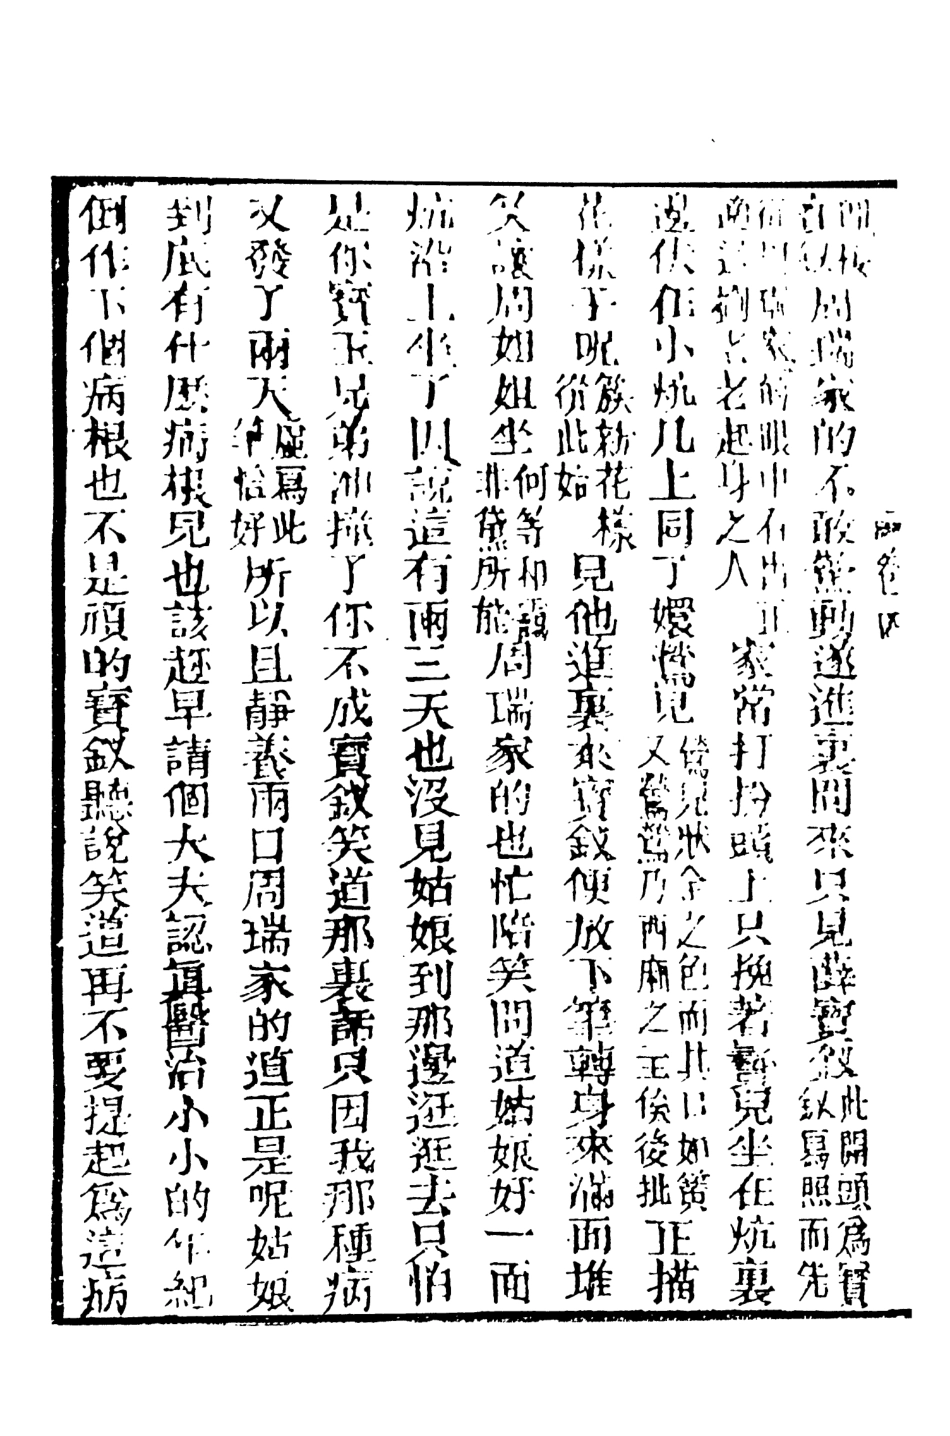 周瑞家的不敢驚動遂進裏間來只見薛寶釵此開頭爲寶釵寫照而先
老起身之人家常打扮頭上只挽著䰖兒坐在炕裏
邊伏在小炕几上同丫嬛鶯兒鶯兒狀金之色而其口如簧又鶯鶯乃西廂之主俟後批正描
花樣子呢簇新花樣從此始見他進裏來寶釵便放下筆轉身來滿面堆
笑讓周姐姐坐何等和靄非黛所能周瑞家的也忙陪笑問道姑娘好一面
炕沿上坐了因說這有兩三天也沒見姑娘到那邊逛逛去只怕
是你寶玉兄弟冲撞了你不成寶釵笑道那裏話只因我那種病
又發了兩天虛寫此筆恰好所以且靜養兩口周瑞家的道正是呢姑娘
到底有什麽病根兒也該趕早請個大夫認眞醫治小小的年紀
倒作下個病根也不是頑的寶釵聽說笑道再不要提起爲這病